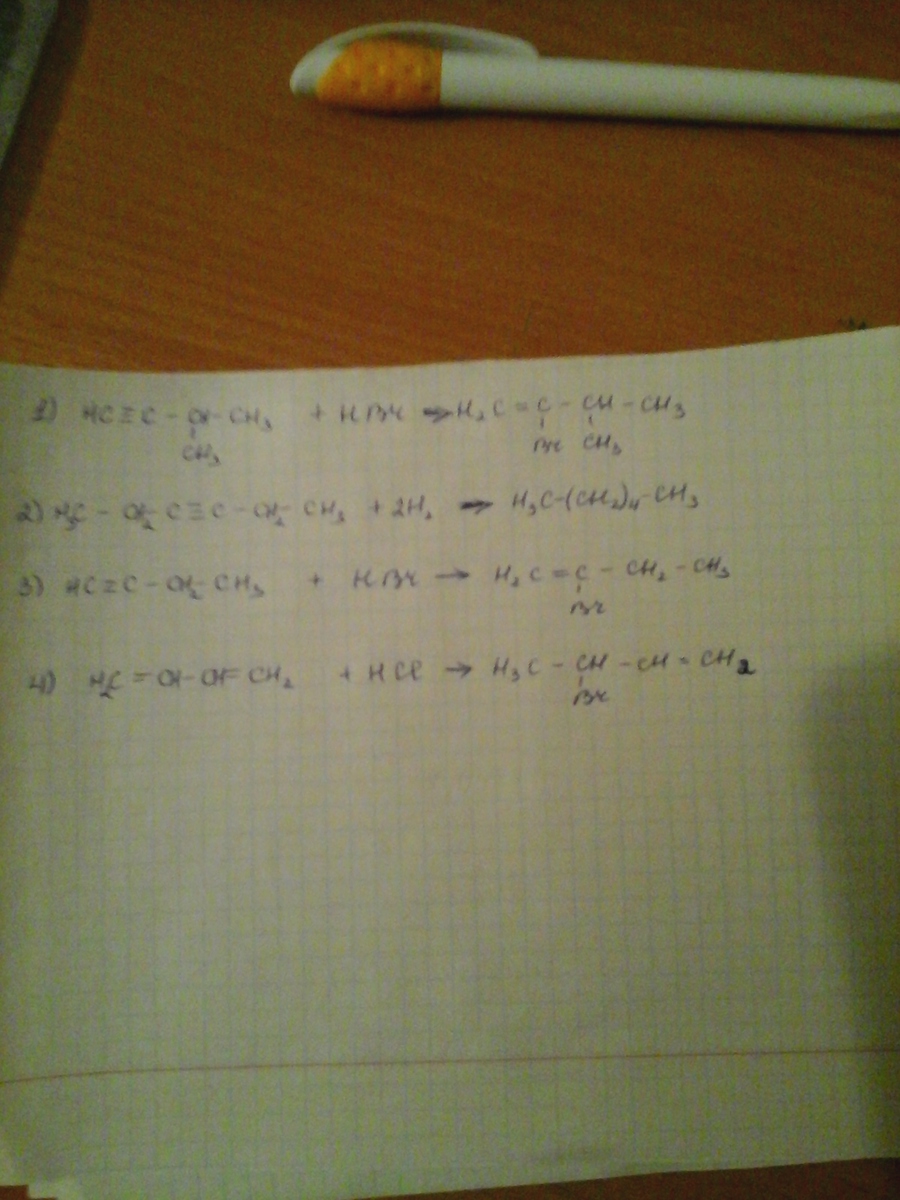 1) HC≡C-CH-CH₃ + HBr → H₂C=C-CH-CH₃
CH₃ Br CH₃
2) H₃C-CH₂-C≡C-CH₂-CH₃ + 2H₂ → H₃C-(CH₂)₄-CH₃
3) HC≡C-CH₂-CH₃ + HBr → H₂C=C-CH₂-CH₃
Br
4) H₂C=CH-CH=CH₂ + HCl → H₃C-CH-CH=CH₂
Br